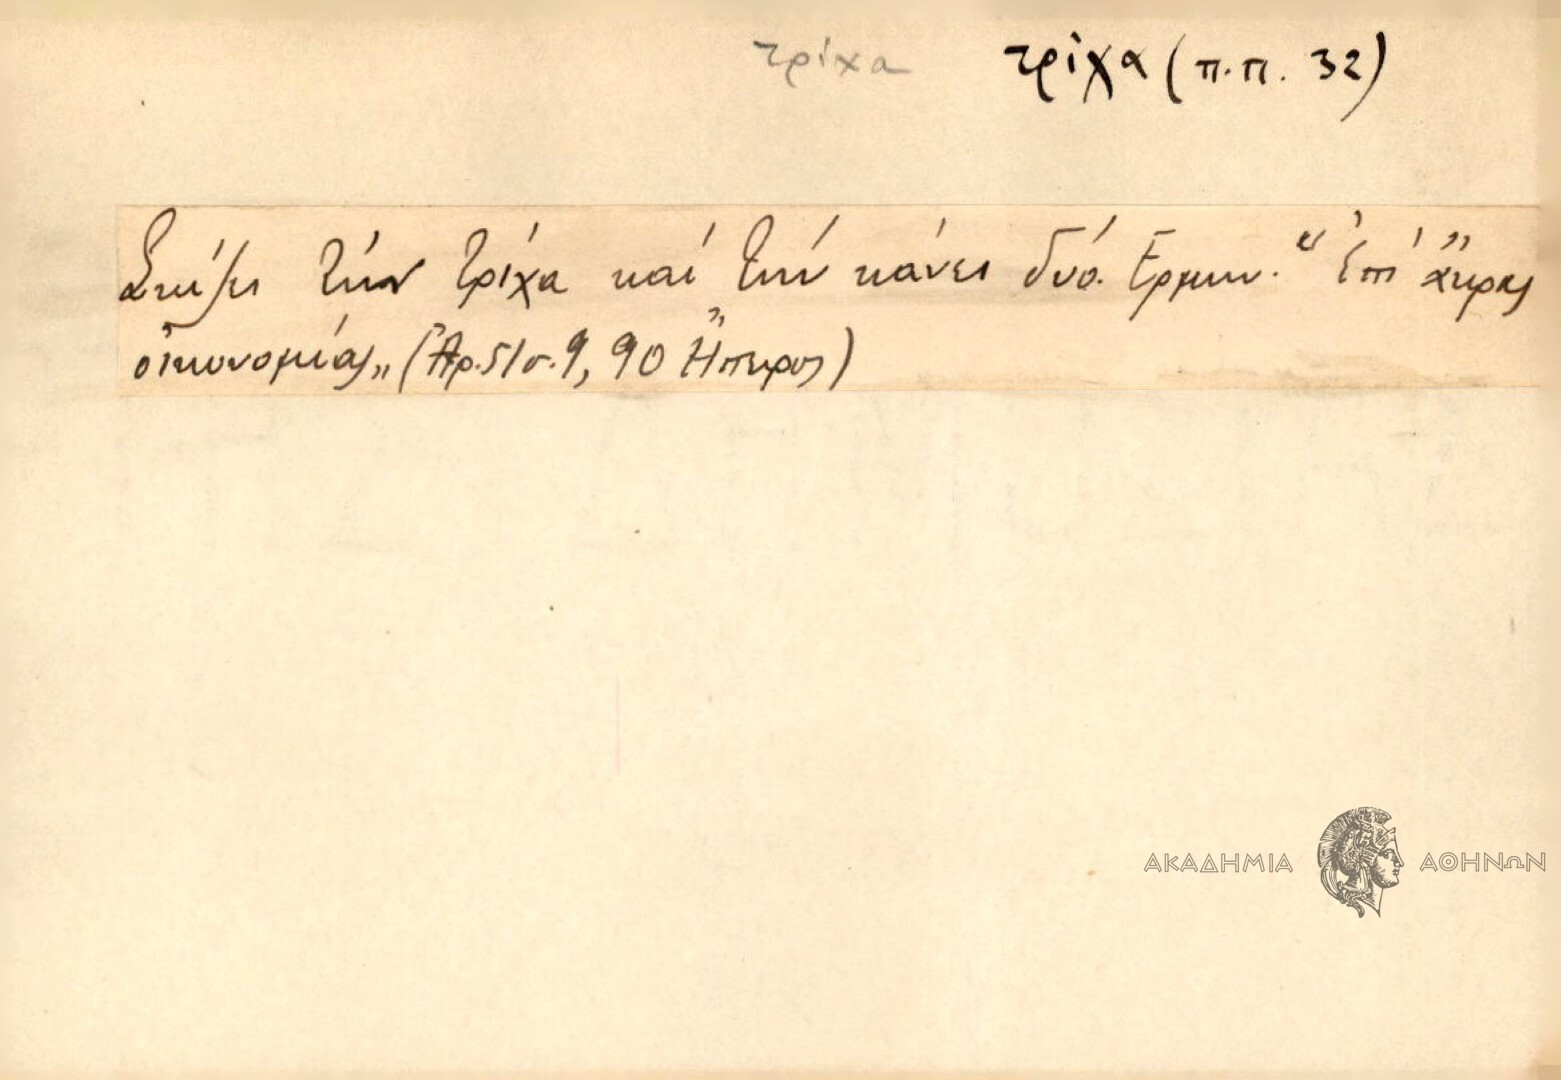 τρίχα τρίχα (π.π. 32)
Σκίζει τήν τρίχα καί τήν κάνει δυό. Ερμην. “Ἐπί ἄκρας
οἰκονομίας„ (Ἀρ. 51 σ. 9, 90 Ἤπειρος)
ΑΚΑΔΗΜΙΑ ΑΘΗΝΩΝ